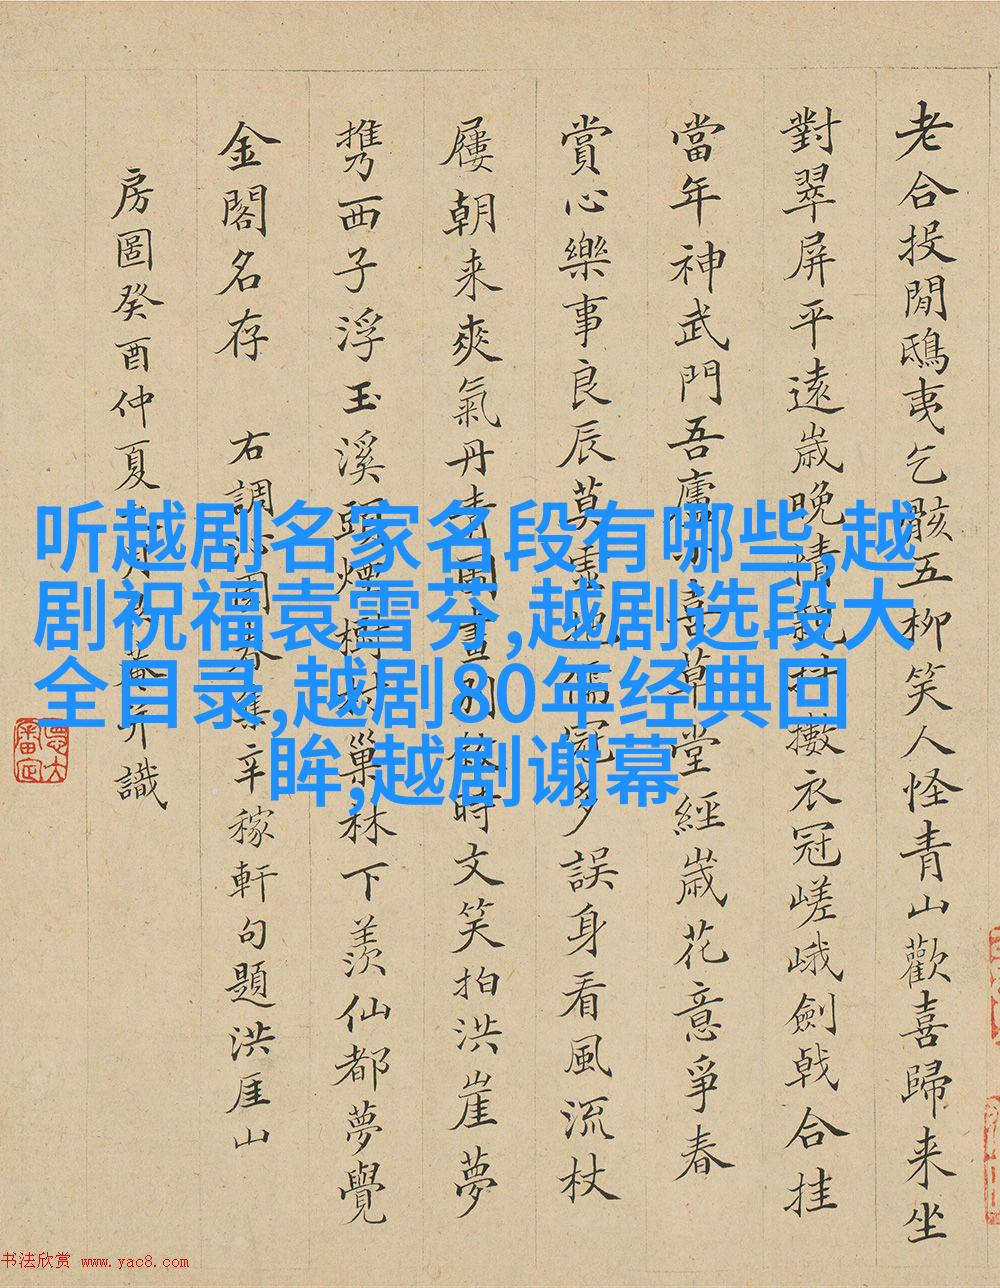 老合投閒鴟夷乞骸五柳笑人怪青山歡喜歸来坐
對翠屏平遠歲晚情親擻衣冠嵯峨劍戟合挂
當年神武門吾廬喜草堂經歲花意爭春
賞心樂事良辰莫羨儒冠多誤身看風流杖
屨朝来爽氣丹青圖畫別時文笑拍洪崖夢
携西子浮玉溪頭煙樹村巢林下羨仙都夢覺
金閣名存 右調沁園春集辛稼軒句題洪厓山
房圖癸酉仲夏識
听越剧名家名段有哪些,越
剧祝福袁雪芬,越剧选段大
全目录,越剧80年经典回
眸,越剧谢幕
书法欣赏 www.yac8.com